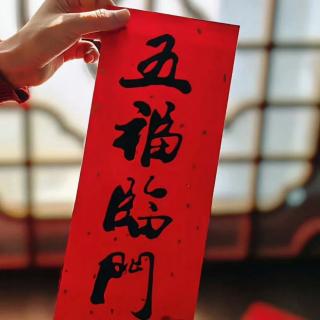 五福臨門